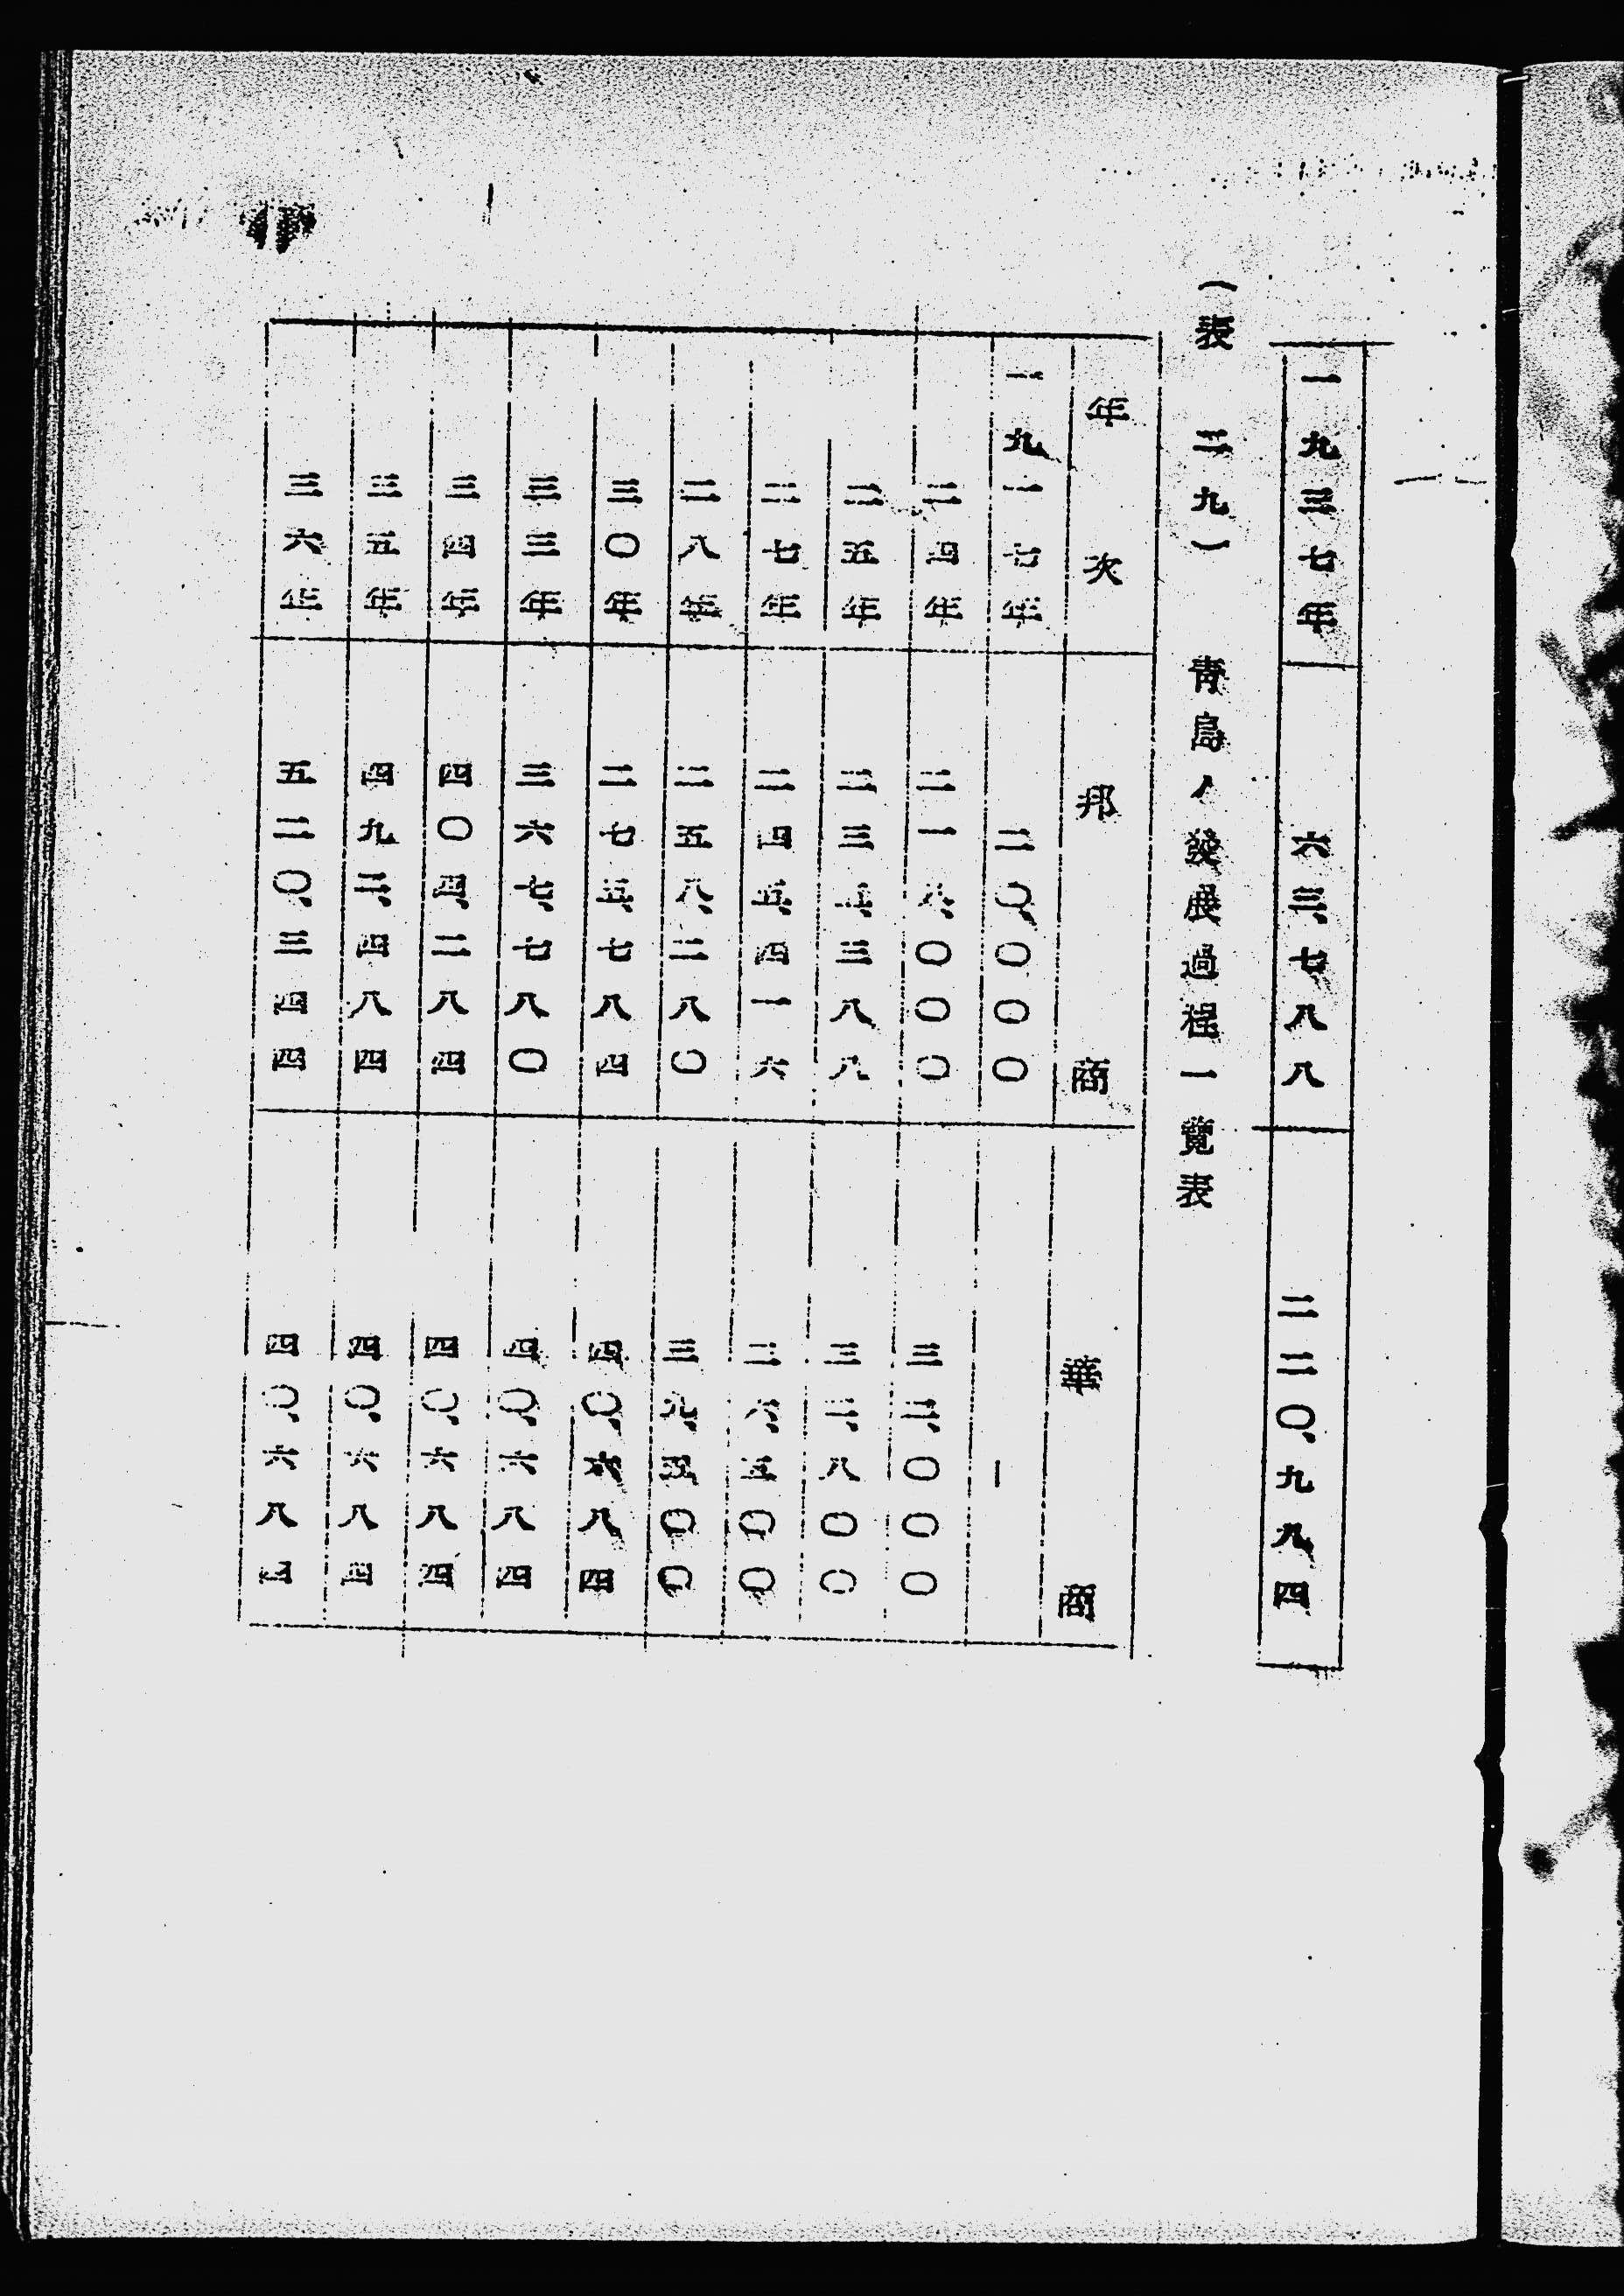 一九三七年 六三、七八八 二二〇、九九四
(表 二九) 青島ノ發展過程一覽表
年次 邦商 華商
一九一七年 二〇、〇〇〇 ―
二四年 二一八、〇〇〇 三二、〇〇〇
二五年 三八八 三三、八〇〇
二七年 二四五、四一六 五〇〇
二八年 二五八、二八〇 三九、五〇〇
三〇年 二七五、七八四 四〇、六八四
三三年 三六七、七八〇 四〇、六八四
三四年 四〇四、二八四 四〇、六八四
三五年 四九二、四八四 四〇、六八四
三六年 五二〇、三四四 四〇、六八四